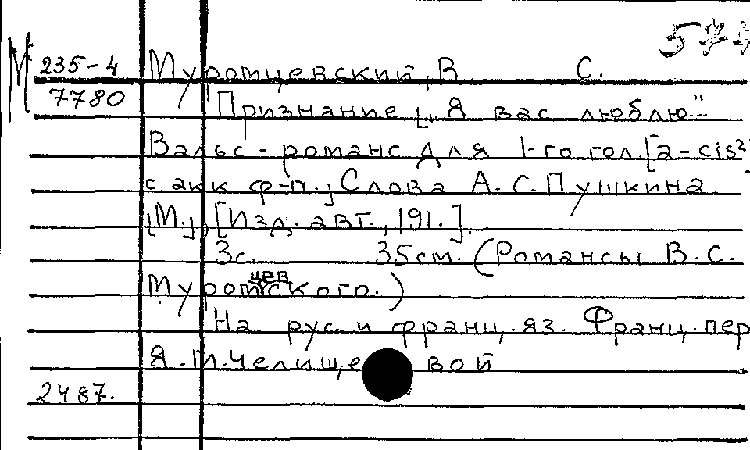 М 235-4 Муромцевский, В. С.
7780 Признание „Я вас люблю"
Вальс-романс для 1-го гол. [a-cis²]
с акк ф-п. Слова А.С.Пушкина.
[М.], [Изд. авт., 191.].
3с. 35см. (Романсы В.С.
Муромцевского.)
На рус. и франц. яз. Франц. пер
Я.М.Челищевой
2487.